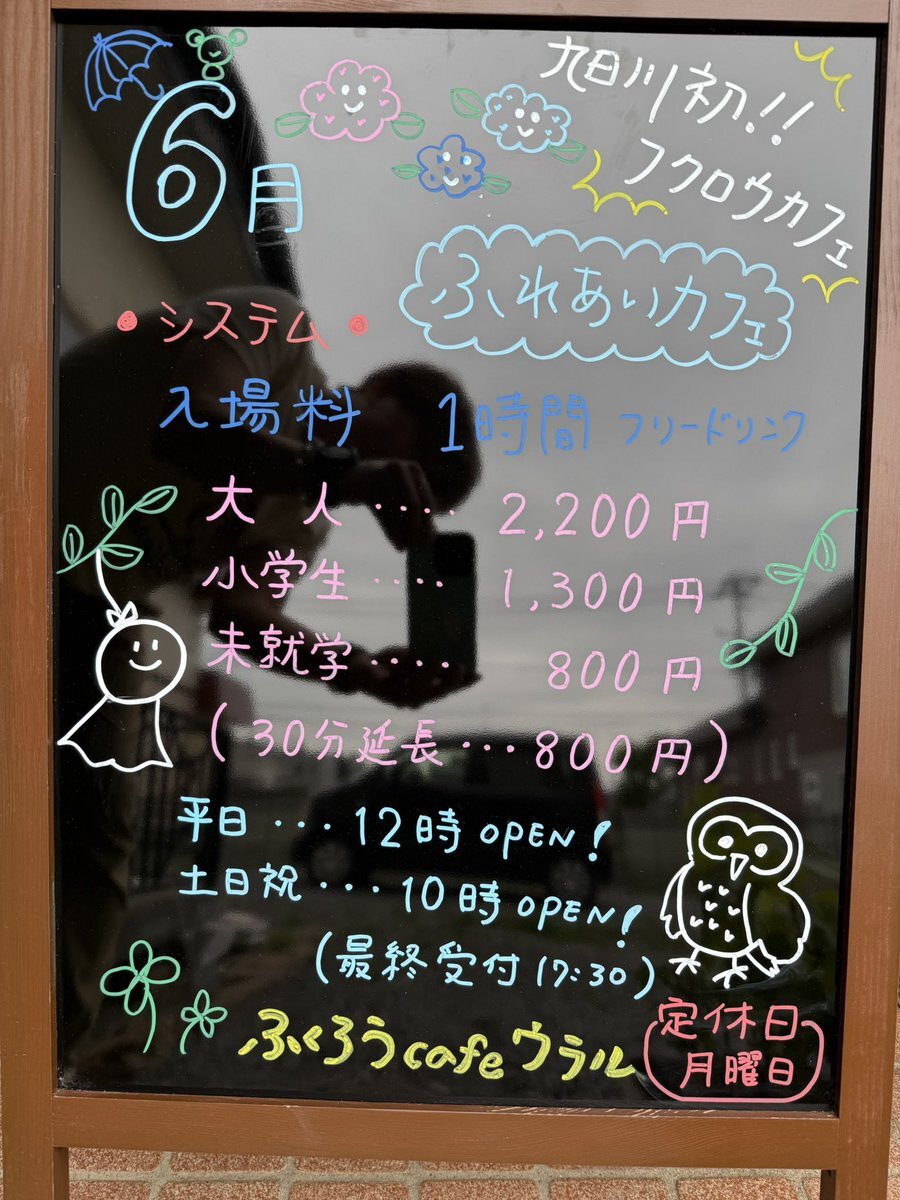 6月
旭川初!!
フクロウカフェ
ふれあいカフェ
・システム・
入場料 1時間 フリードリンク
大 人‥‥ 2,200円
小学生‥‥ 1,300円
未就学‥‥ 800円
(30分延長…800円)
平日…12時OPEN!
土日祝…10時OPEN!
(最終受付17:30)
ふくろうcafeウラル
定休日
月曜日